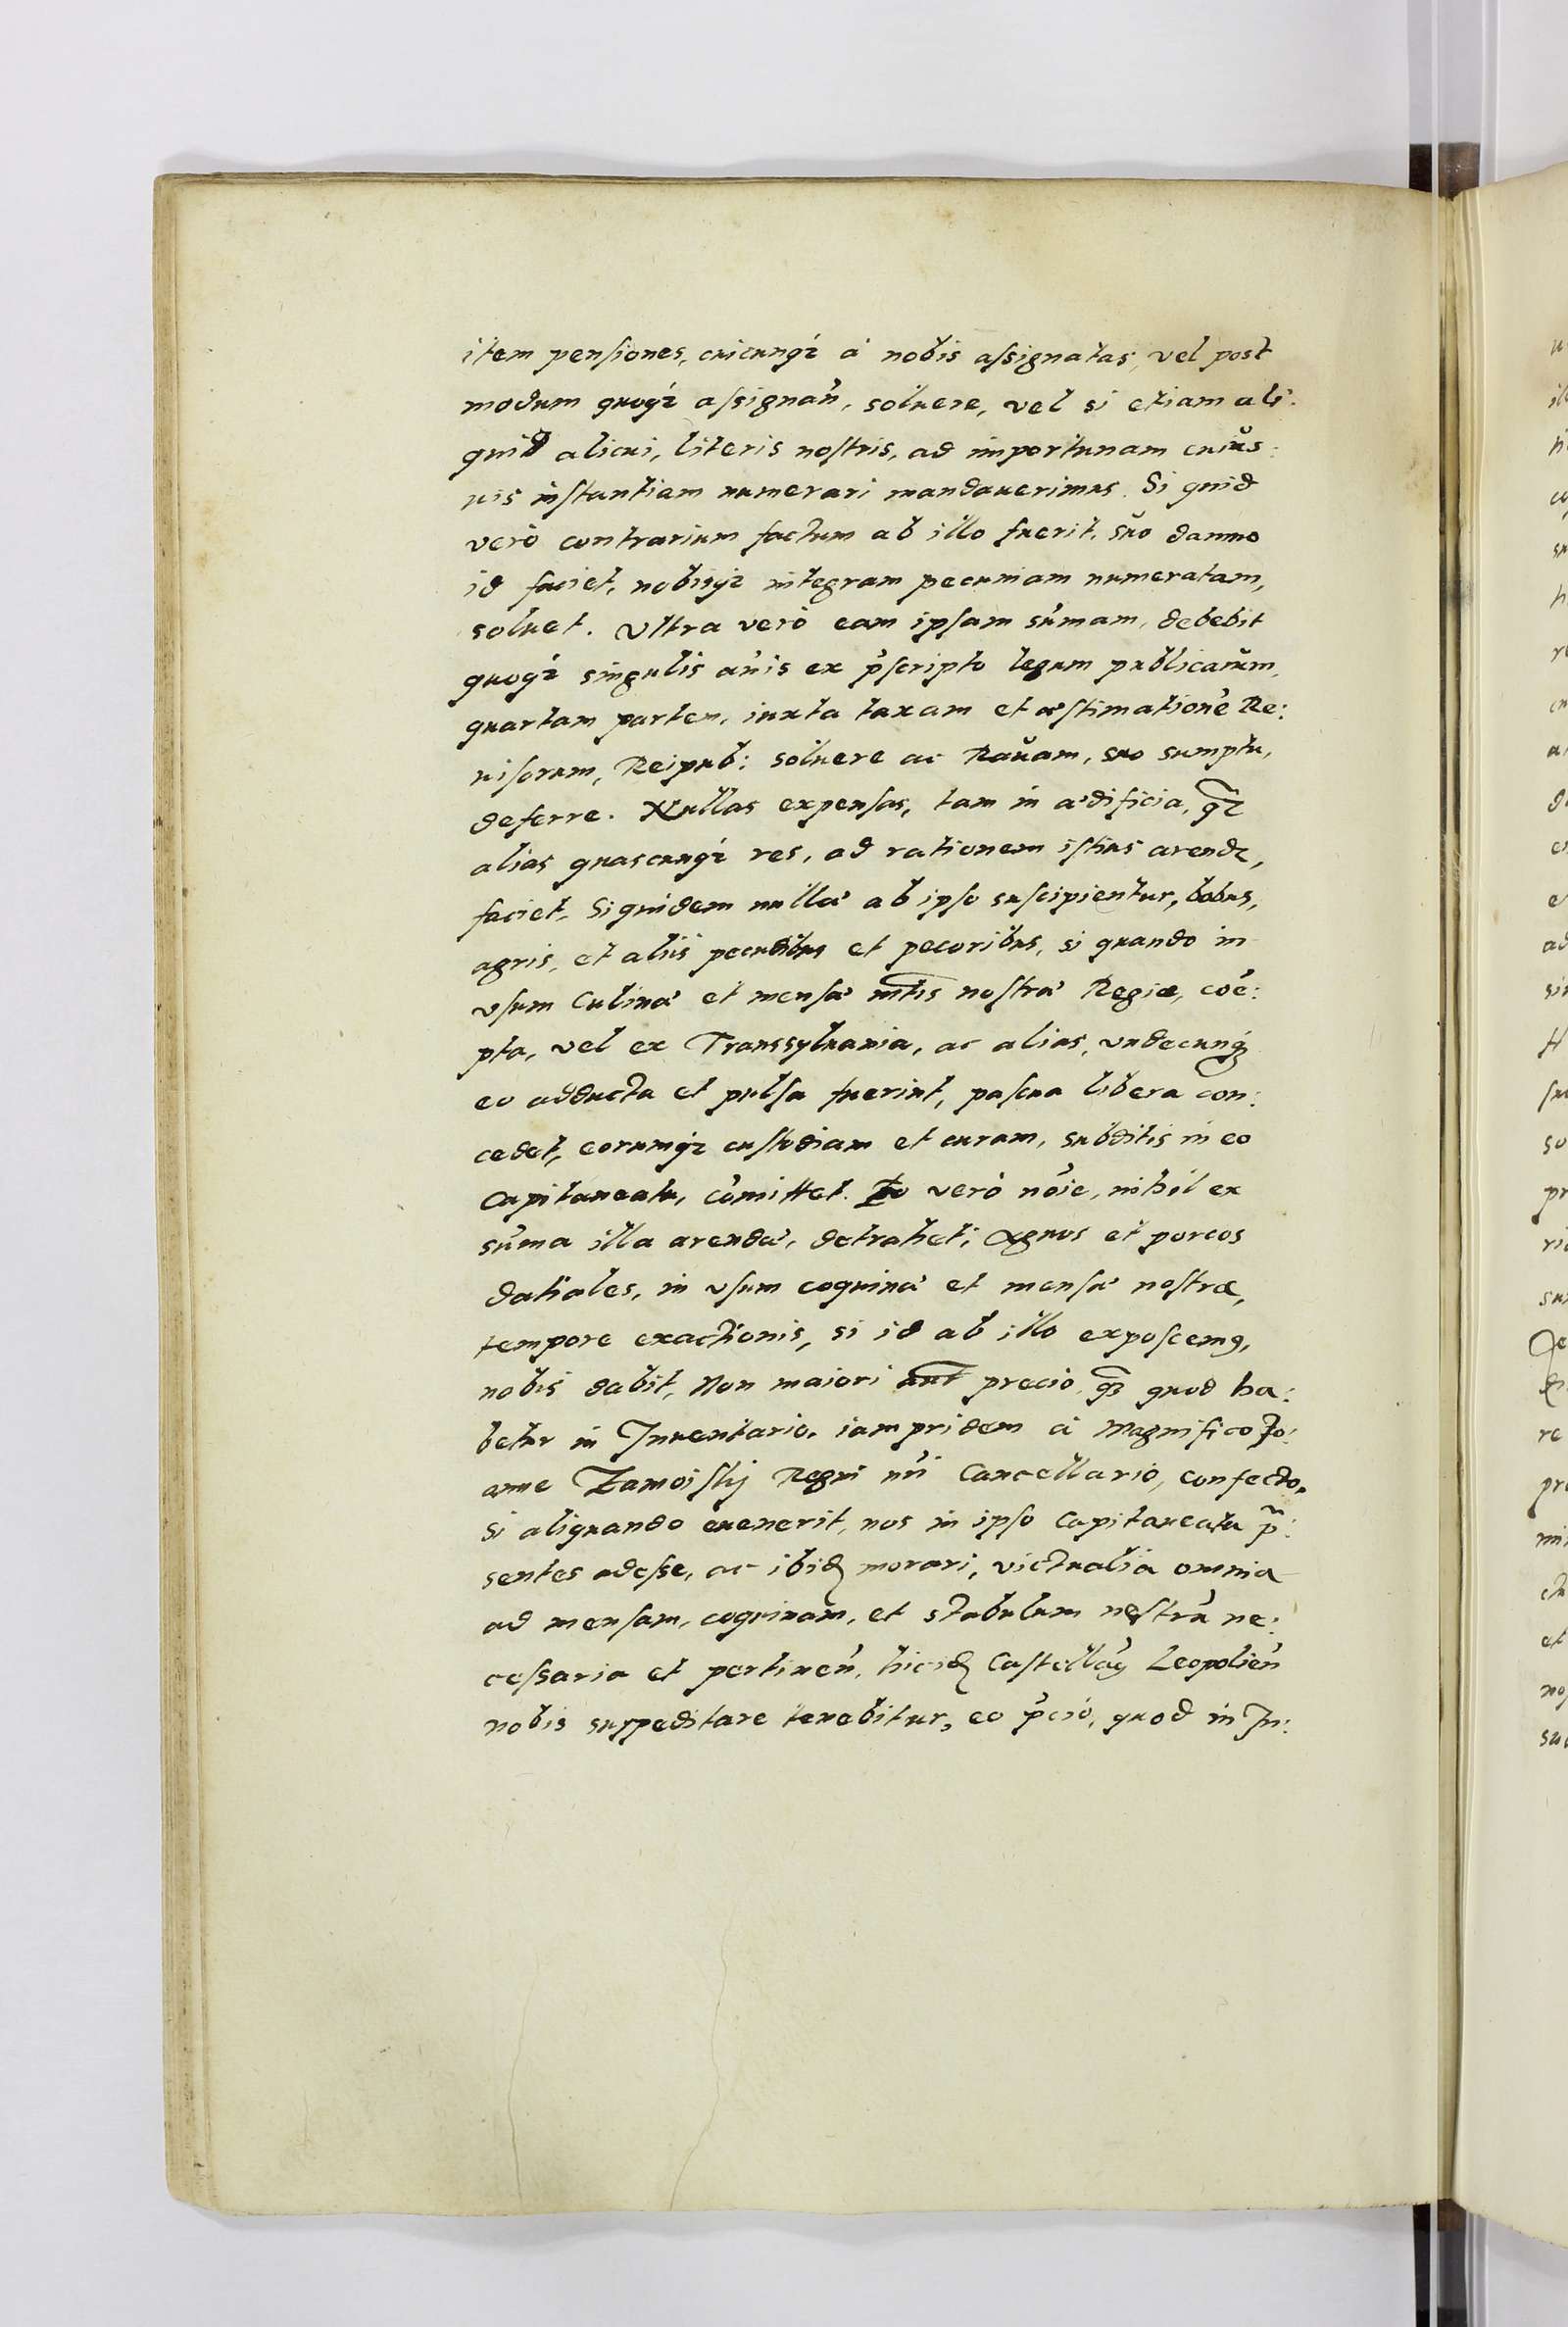 item pensiones, cuicunqꝫ à nobis assignatas, vel post
modum quoqꝫ assignañ, soluere, vel si etiam ali:
quid alicui, literis nostris, ad importunam cuius:
uis instantiam numerari mandauerimus. Si quid
verò contrarium factum ab illo fuerit, suo damno
id faciet, nobisqꝫ integram pecuniam numeratam,
soluet. Vltra verò eam ipsam sum̃am, debebit
quoqꝫ singulis añis ex p̃scripto legum publicarum,
quartam partem, iuxta taxam et æstimationẽ Re:
uisorum, Reipub: soluere ac Rauam, suo sumptu,
deferre. Nullas expensas, tam in ædificia, q̃ꝫ
alias quascunqꝫ res, ad rationem istius arendę,
faciet, Siquidem nullæ ab ipso suscipientur, bobus,
agris, et aliis pecudibus et pecoribus, si quando in
vsum Culinæ et mensæ mtis nostræ Regiæ, coẽ:
pta, vel ex Transsyluania, ac alias, vndecunqꝫ
eo adducta et pulsa fuerint, pascua libera con:
cedet, eorumqꝫ custodiam et curam, subditis in eo
Capitaneatu, com̃ittet. Eo verò noĩe, nihil ex
sum̃a illa arendæ, detrahet; Agnos et porcos
datiales, in vsum coquinæ et mensæ nostræ,
tempore exactionis, si id ab illo exposcemꝰ,
nobis dabit, Non maiori aut̃ precio, q̃ꝫ quod ha:
betur in Inuentario, iampridem à Magnifico Jo:
anne Zamoiskij Regni nr̃i Cancellario, confecto.
Si aliquando euenerit, nos in ipso Capitaneatu p̃:
sentes adesse, ac ibidꝫ morari, victualia omnia
ad mensam, coquinam, et stabulum nostrũ ne:
cessaria et pertineñ, hicidꝫ Castellaꝰ Leopolieñ
nobis suppeditare tenebitur, eo p̃cio, quod in In: